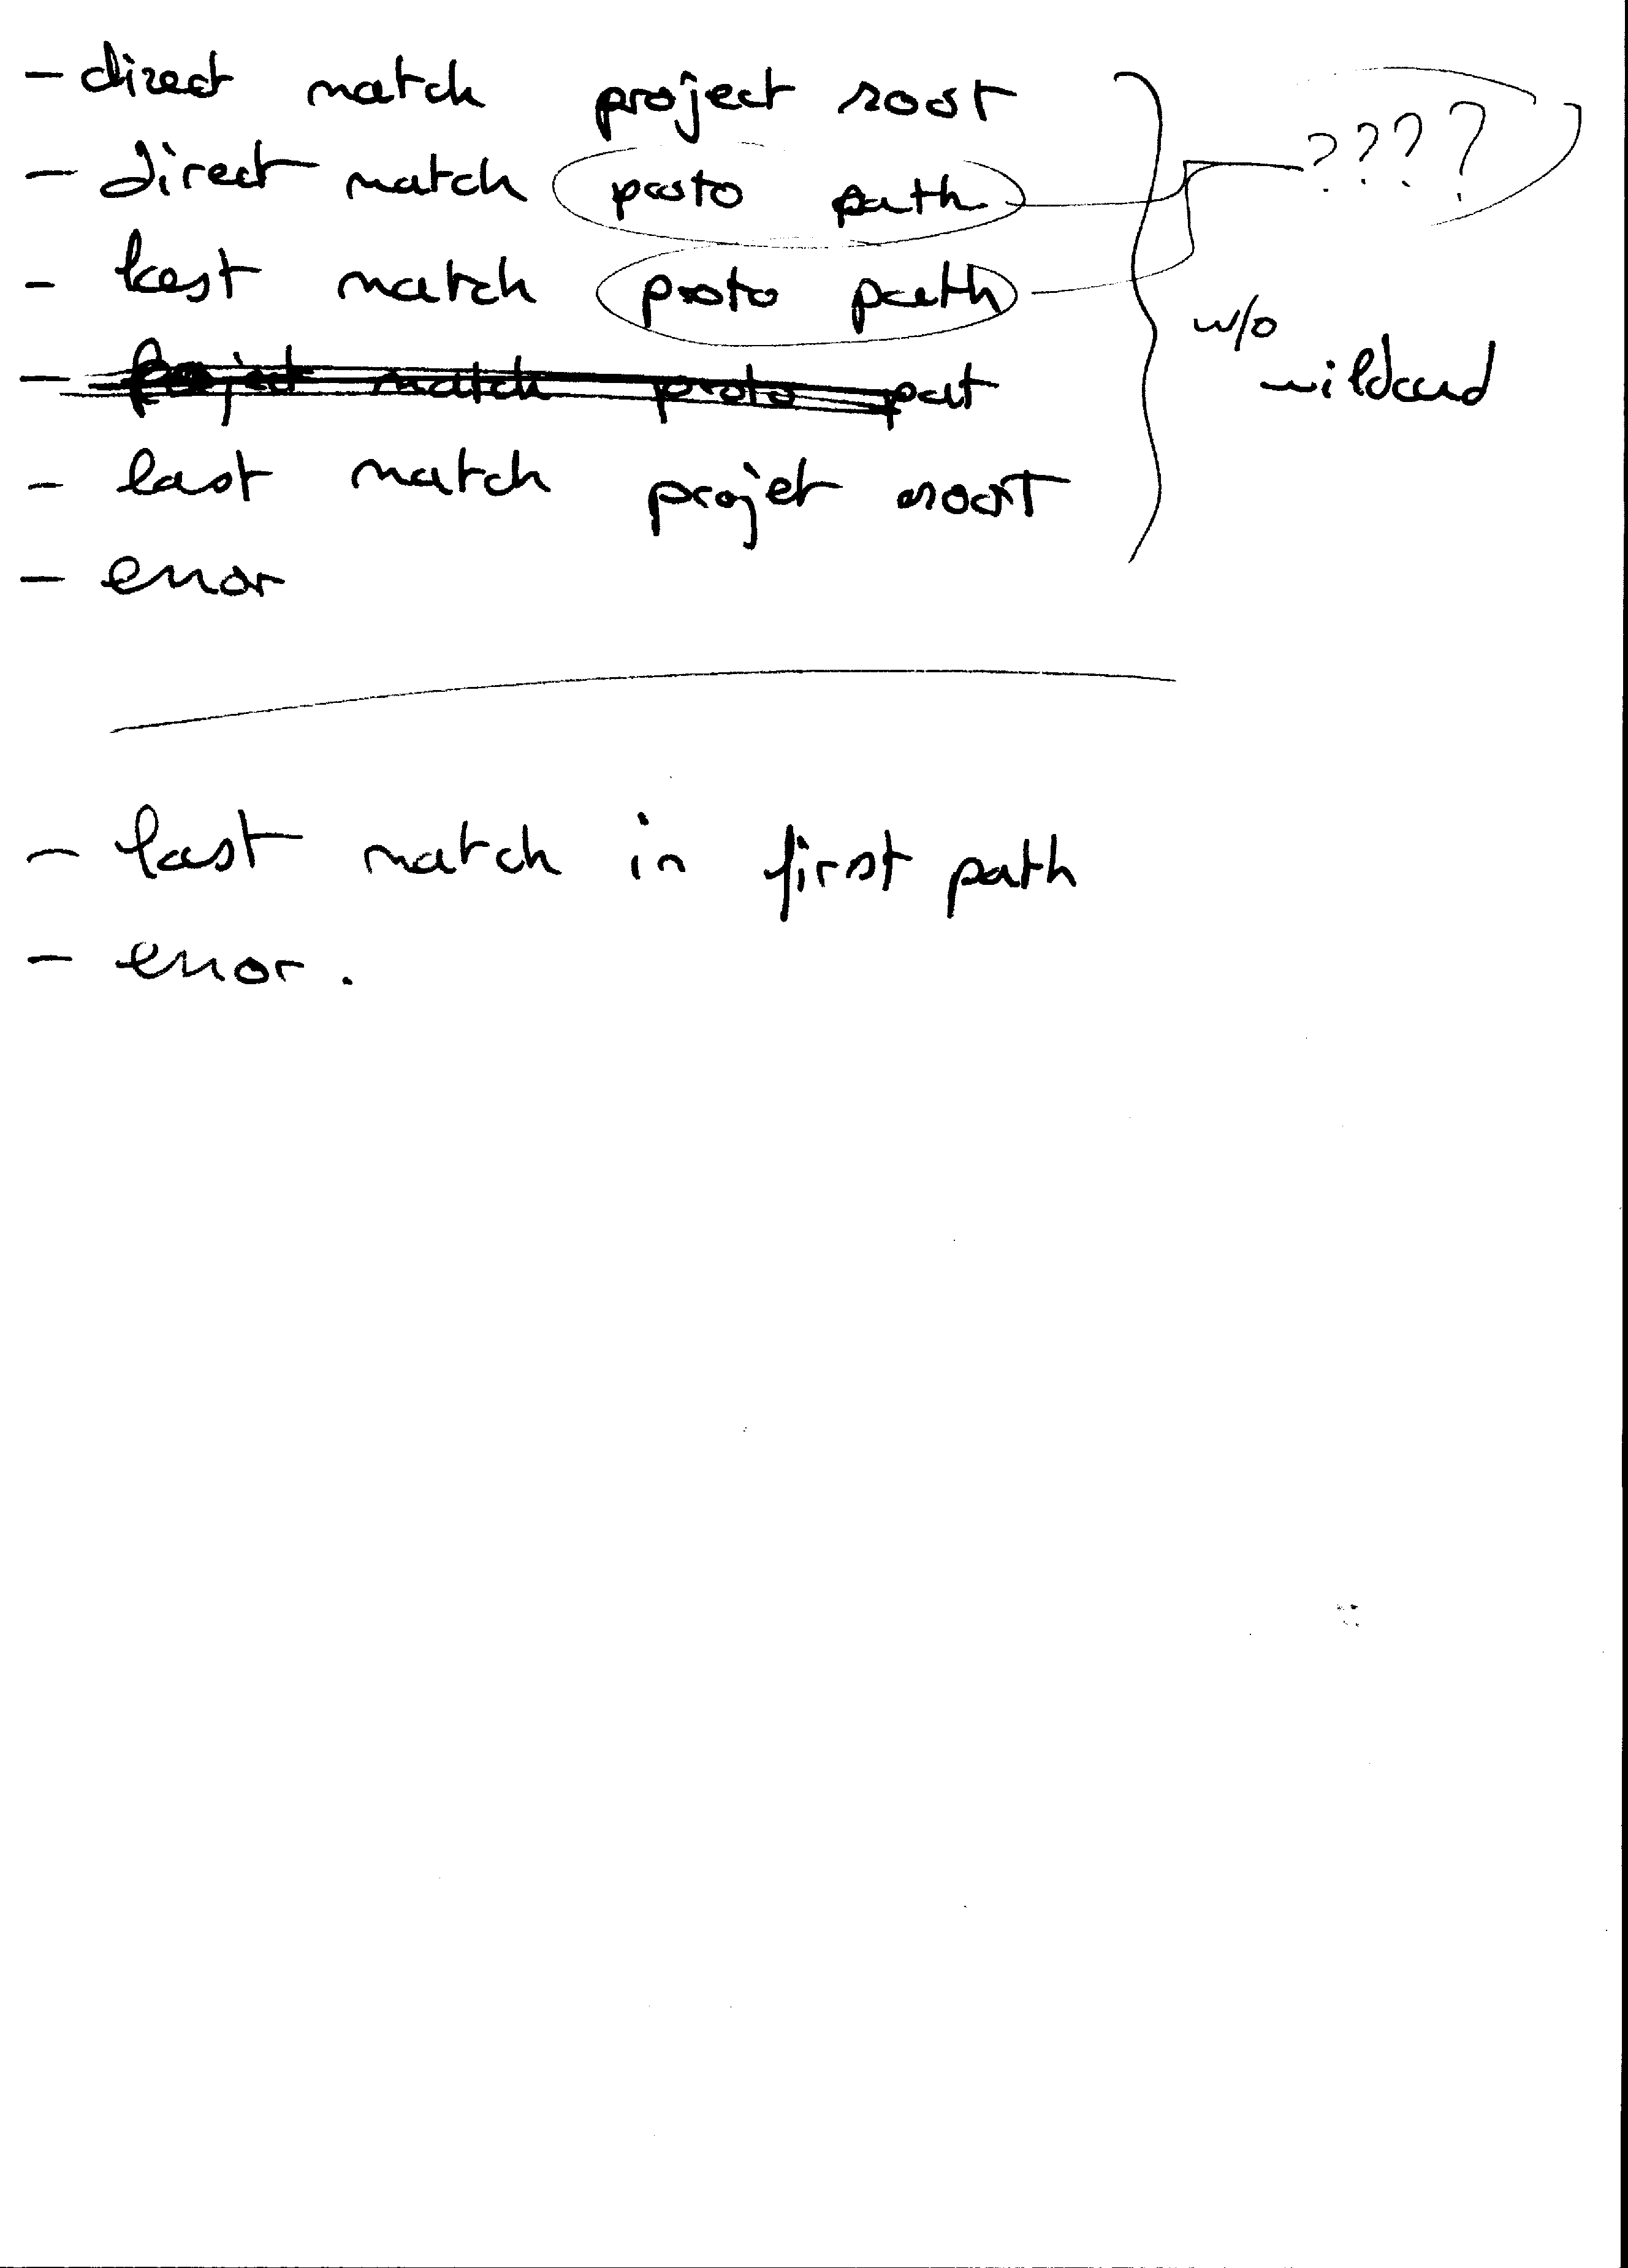 - direct match project root
- direct match proto path
????
- last match proto path
w/o
wildcard
- project match proto pat
- last match projet root
- error
- last match in first path
- error.